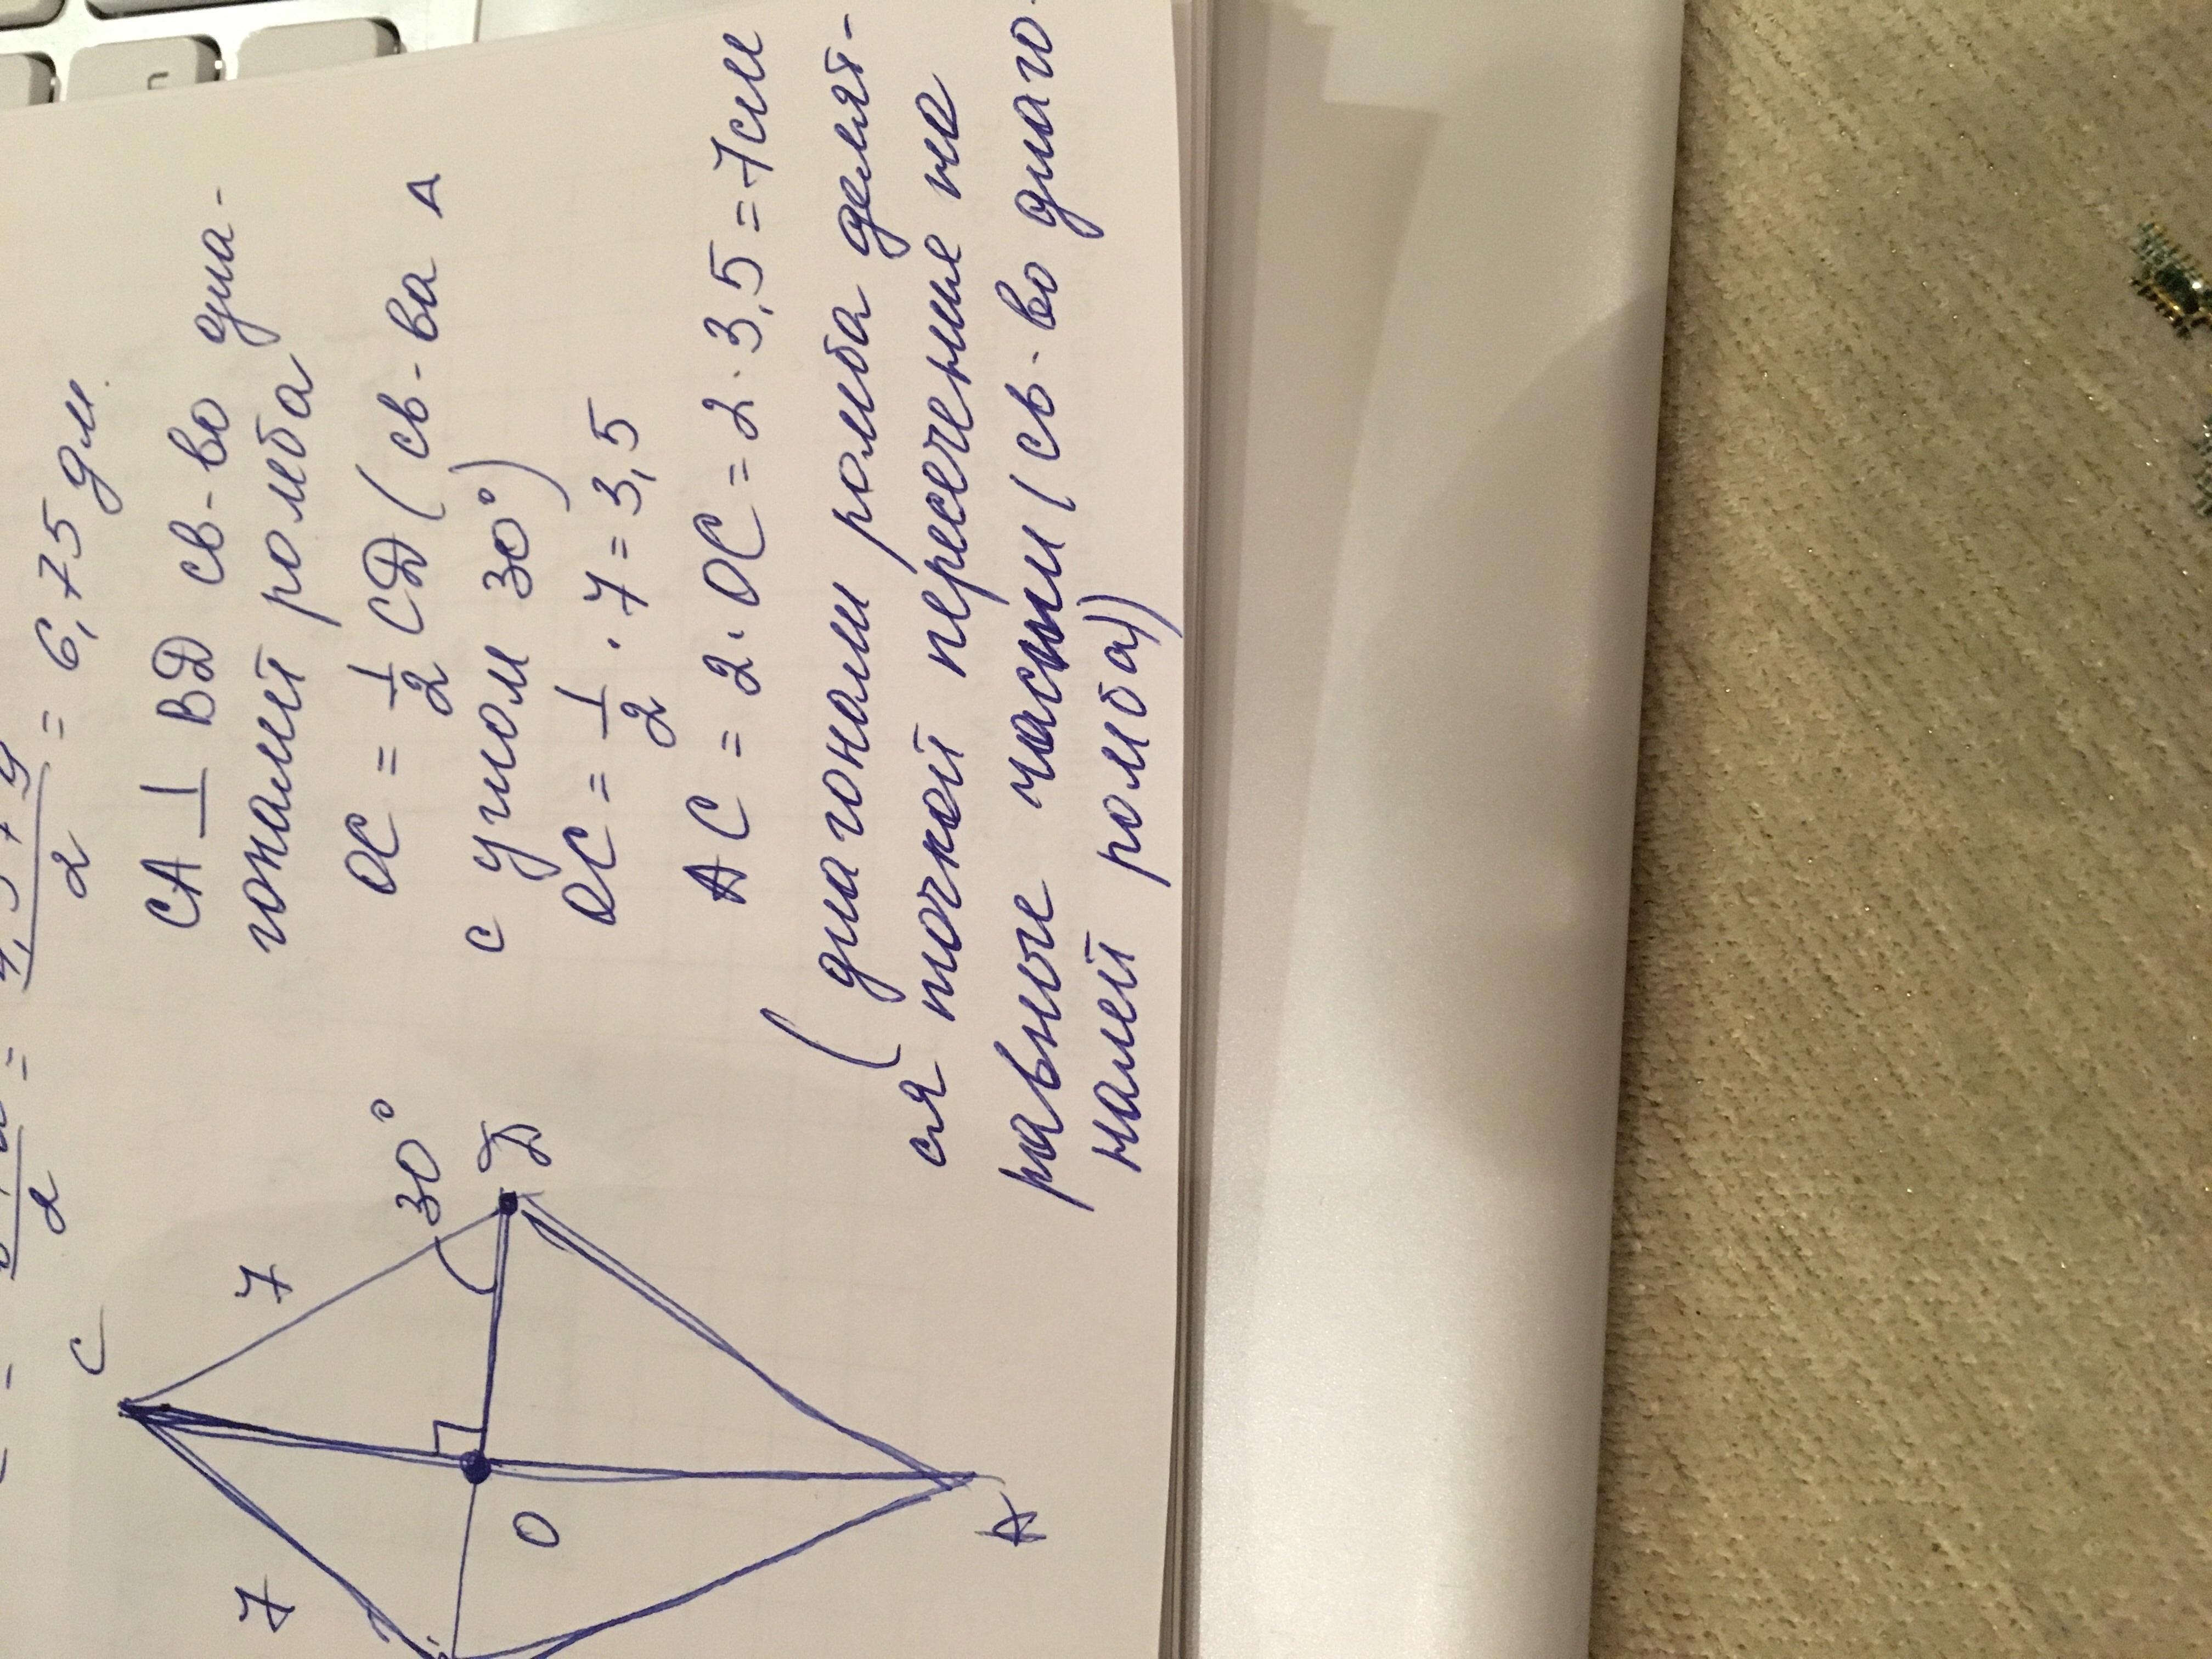 2 = 2 = 6,75 дм.
C
7
7
30°
Д
O
A
CA ⊥ ВД св-во диа-
гоналей ромба
OC = 1/2 CД (св-ва Δ
с углом 30°)
OC = 1/2 · 7 = 3,5
AC = 2 · OC = 2 · 3,5 = 7см
(диагонали ромба делят-
ся точкой пересечения на
равные части (св-во диаго-
налей ромба))